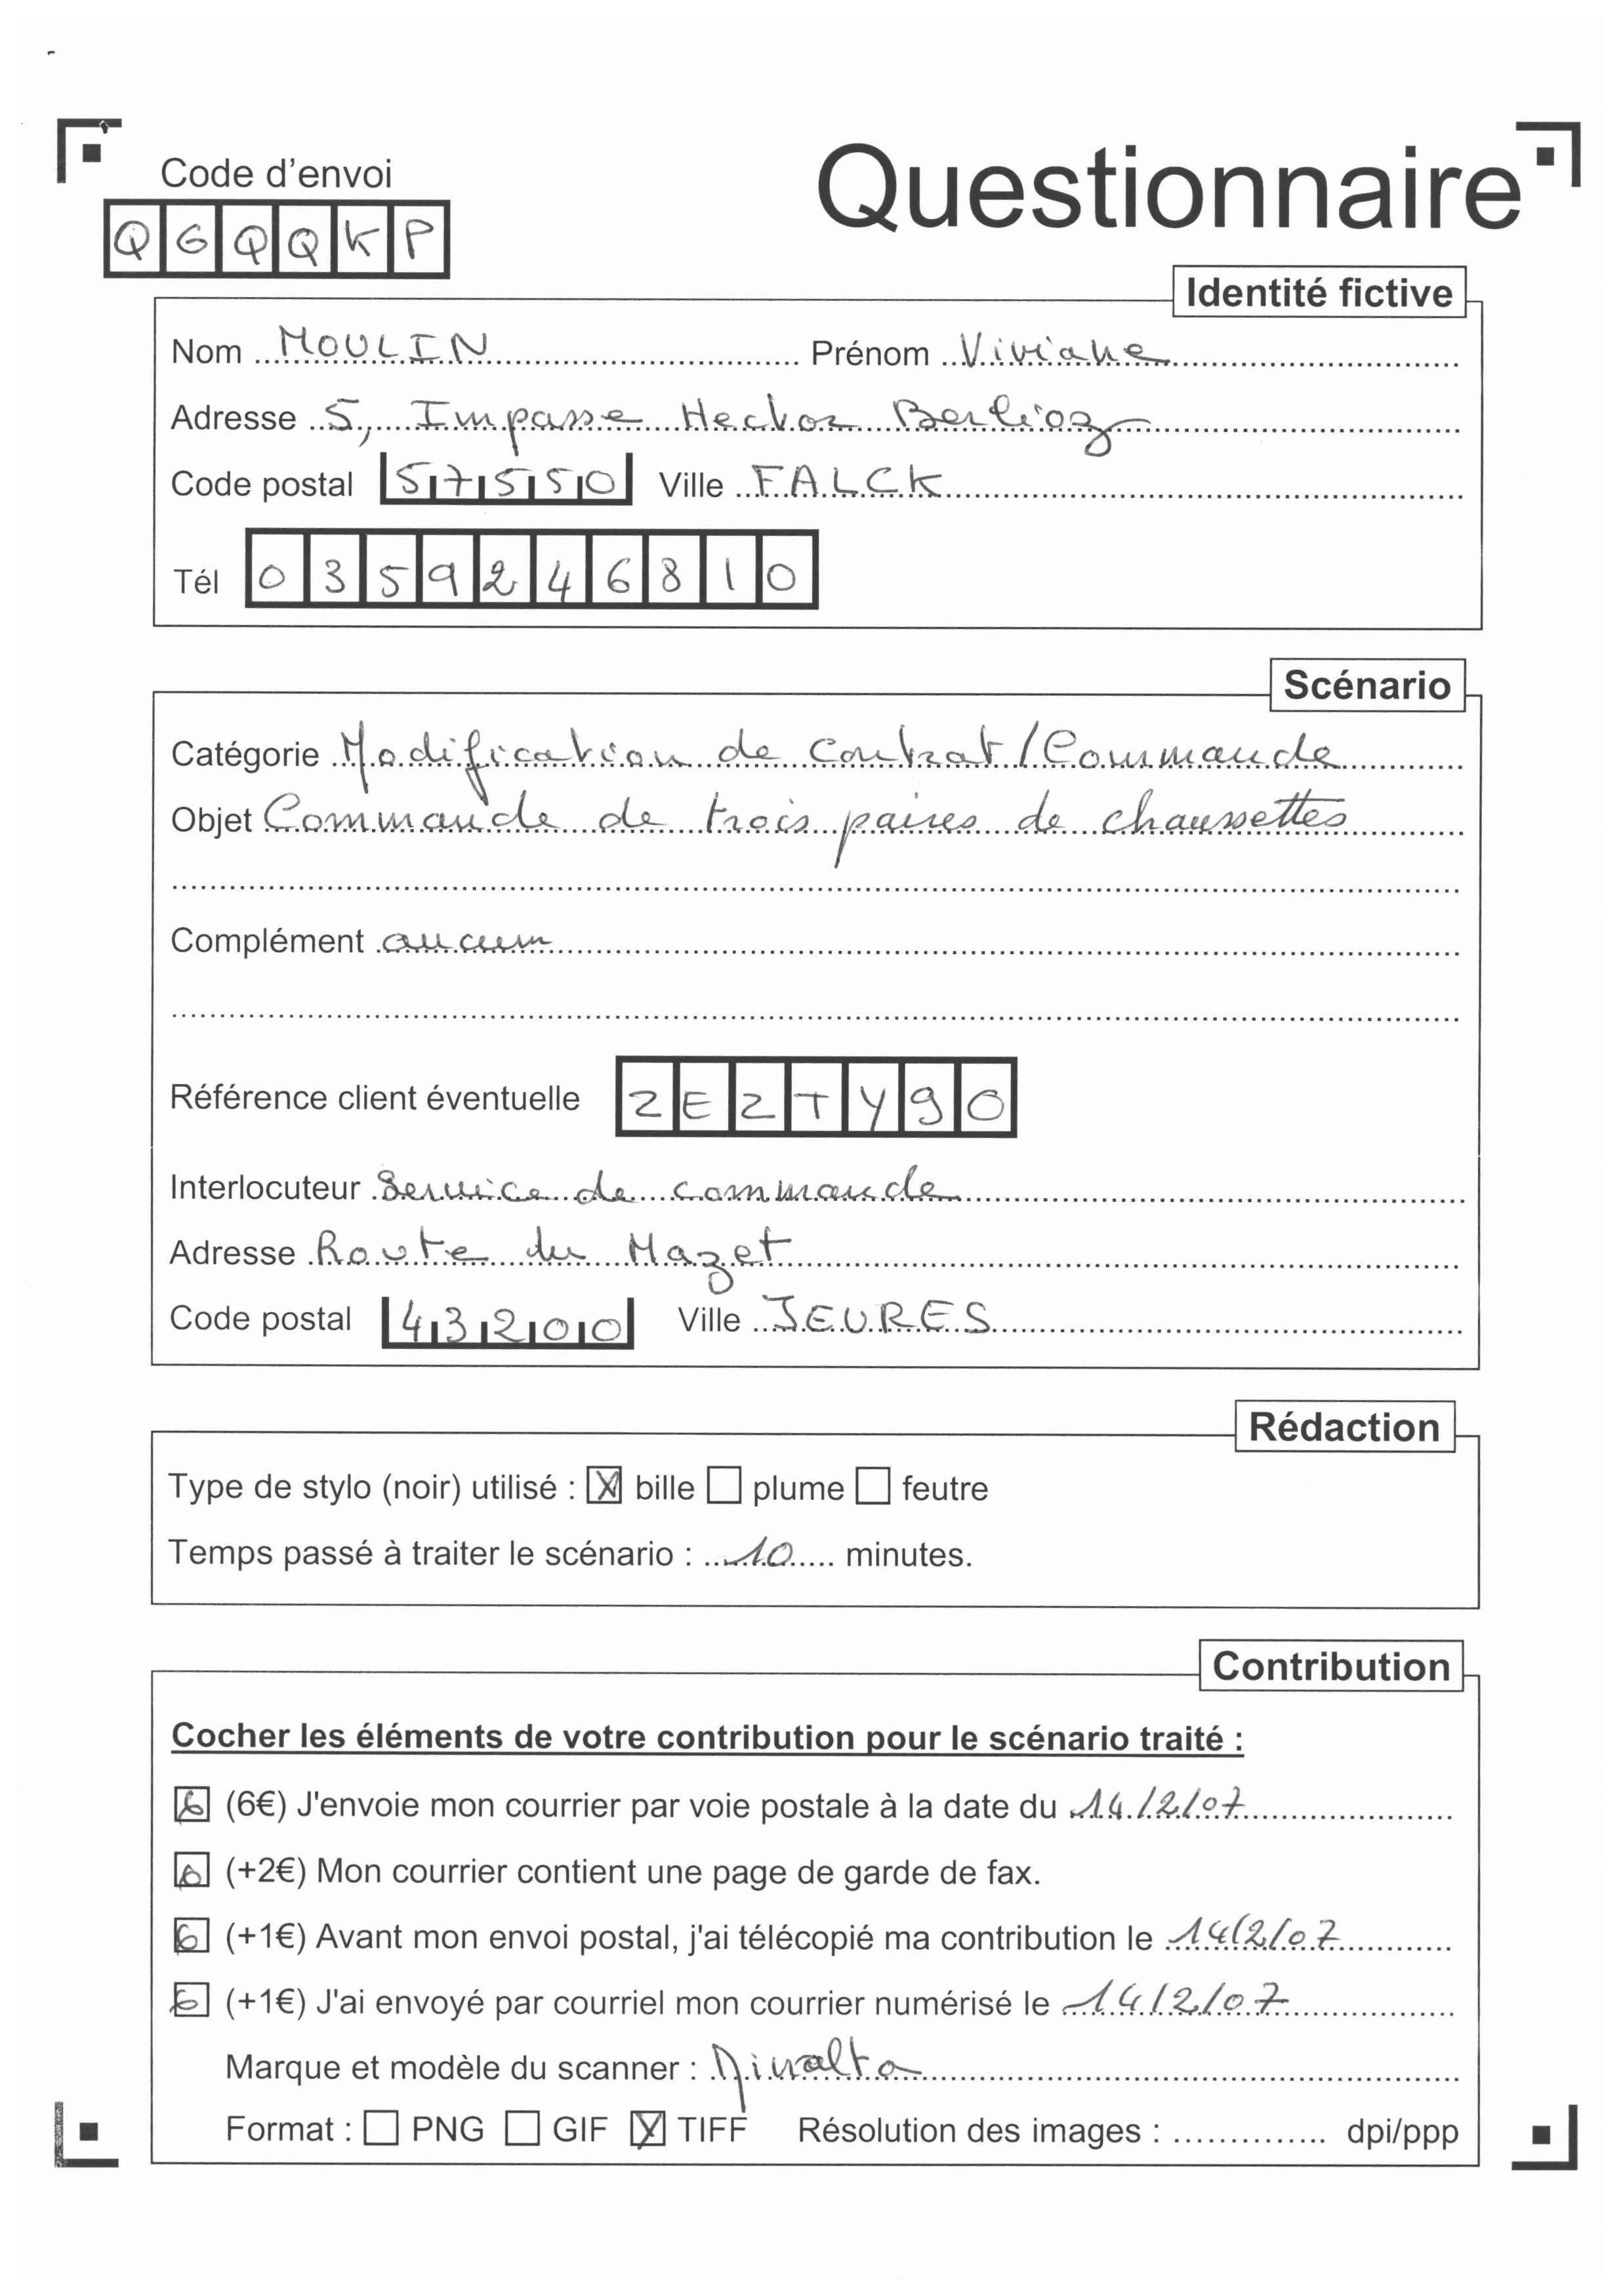 Code d'envoi
QGQQKP
Questionnaire
Identité fictive
Nom MOULIN Prénom Viviane
Adresse 5, Impasse Hector Berlioz
Code postal 57550 Ville FALCK
Tél 0359246810
Scénario
Catégorie Modification de contrat / Commande
Objet Commande de trois paires de chaussettes
Complément aucun
Référence client éventuelle ZEZTY90
Interlocuteur Service de commande
Adresse Route du Mazet
Code postal 43200 Ville JEURES
Rédaction
Type de stylo (noir) utilisé : X bille plume feutre
Temps passé à traiter le scénario : 10 minutes.
Contribution
Cocher les éléments de votre contribution pour le scénario traité :
(6€) J'envoie mon courrier par voie postale à la date du 14/2/07
(+2€) Mon courrier contient une page de garde de fax.
(+1€) Avant mon envoi postal, j'ai télécopié ma contribution le 14/2/07
(+1€) J'ai envoyé par courriel mon courrier numérisé le 14/2/07
Marque et modèle du scanner : Minolta
Format : PNG GIF X TIFF Résolution des images : .............. dpi/ppp